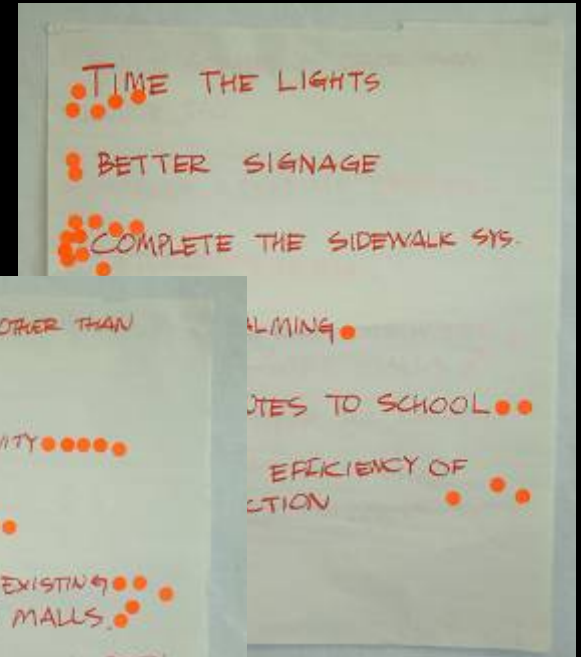 TIME THE LIGHTS
BETTER SIGNAGE
COMPLETE THE SIDEWALK SYS.
LMING
UTES TO SCHOOL
EFFICIENCY OF
CTION
OTHER THAN
ITY
EXISTING
MALLS.